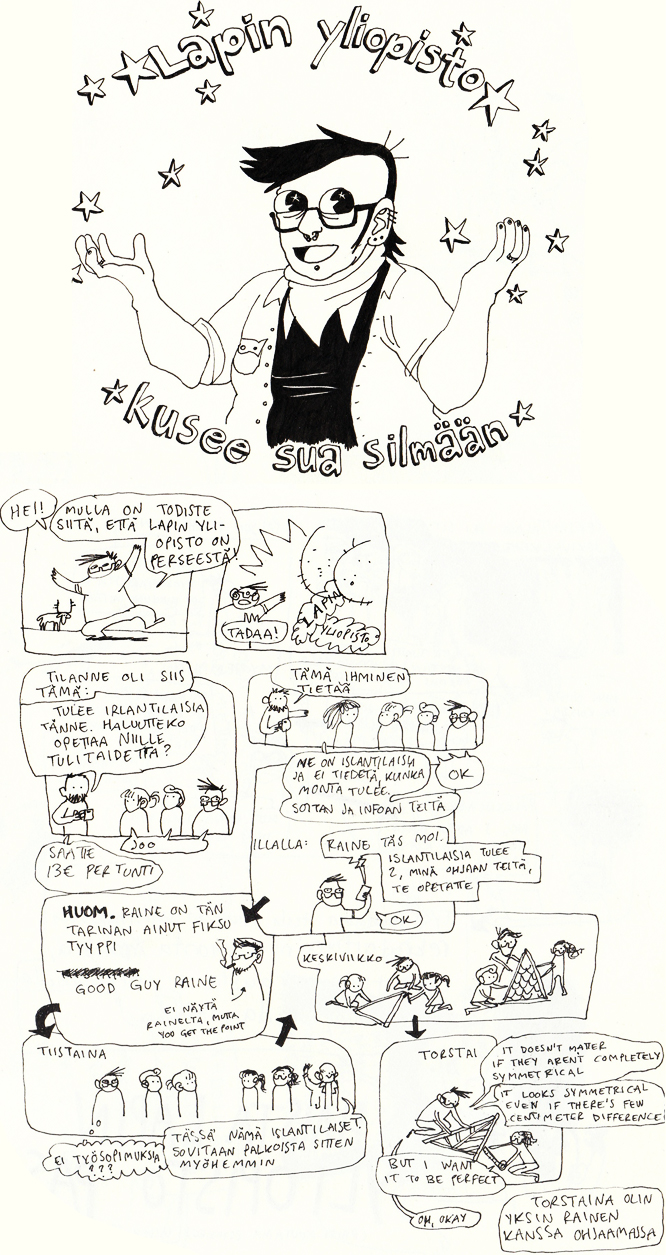 Lapin yliopisto
kusee sua silmään
HEI!
MULLA ON TODISTE
SIITÄ, ETTÄ LAPIN YLI-
OPISTO ON
PERSEESTÄ!
TADAA!
LAPIN
YLIOPISTO
TILANNE OLI SIIS
TÄMÄ:
TULEE IRLANTILAISIA
TÄNNE. HALUUTTEKO
OPETTAA NIILLE
TULITAIDETTA?
JOO
SAATTE
13€ PER TUNTI
TÄMÄ IHMINEN
TIETÄÄ
NE ON ISLANTILAISIA
JA EI TIEDETÄ, KUINKA
MONTA TULEE.
SOITAN JA INFOAN TEITÄ
OK
ILLALLA:
RAINE TÄS MOI.
ISLANTILAISIA TULEE
2, MINÄ OHJAAN TEITÄ,
TE OPETATTE
OK
HUOM. RAINE ON TÄN
TARINAN AINUT FIKSU
TYYPPI
GOOD GUY RAINE
EI NÄYTÄ
RAINELTA, MUTTA
YOU GET THE POINT
TIISTAINA
EI TYÖSOPIMUKSIA
???
TÄSSÄ NÄMÄ ISLANTILAISET.
SOVITAAN PALKOISTA SITTEN
MYÖHEMMIN
KESKIVIIKKO
TORSTAI
IT DOESN'T MATTER
IF THEY AREN'T COMPLETELY
SYMMETRICAL
IT LOOKS SYMMETRICAL
EVEN IF THERE'S FEW
CENTIMETER DIFFERENCE!
BUT I WANT
IT TO BE PERFECT
OH, OKAY
TORSTAINA OLIN
YKSIN RAINEN
KANSSA OHJAAMASSA